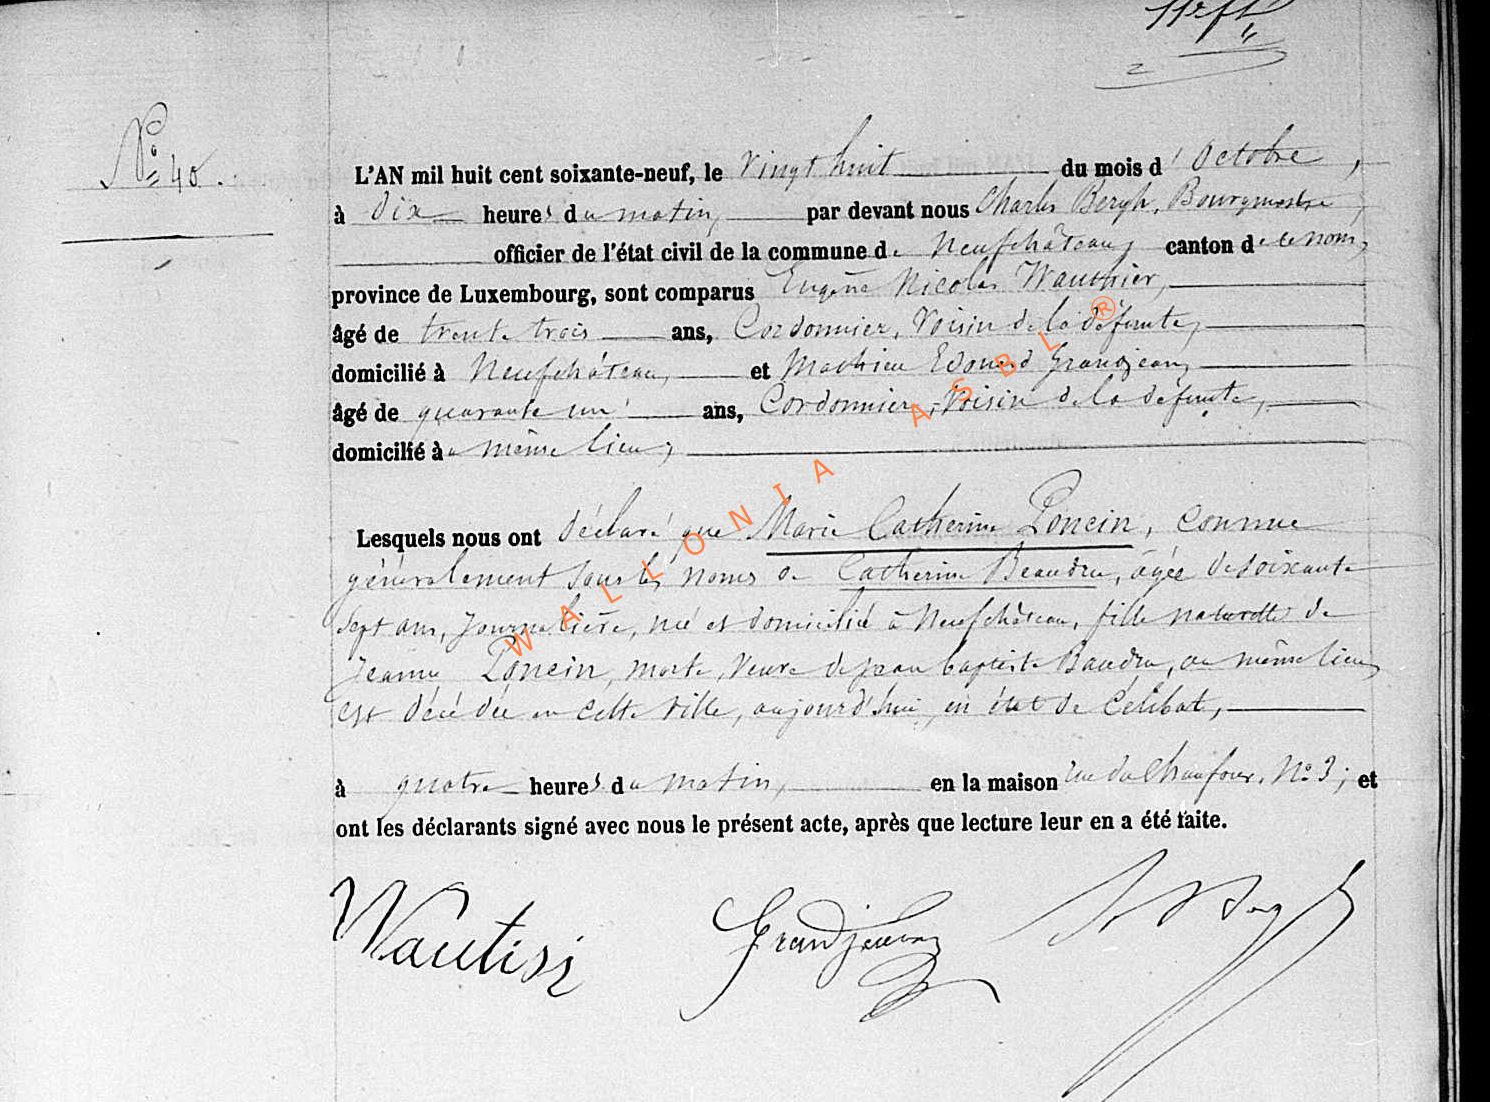 N° 40.
L'AN mil huit cent soixante-neuf, le vingt huit du mois d'Octobre,
à dix heures du matin, par devant nous Charles Bergh, Bourgmestre,
officier de l'état civil de la commune de Neufchâteau, canton de ce nom,
province de Luxembourg, sont comparus Eugène Nicolas Wauthier,
âgé de trente trois ans, Cordonnier, Voisin de la défunte,
domicilié à Neufchâteau, et Mathieu Edouard Grandjean,
âgé de quarante un ans, Cordonnier, Voisin de la défunte,
domicilié au même lieu,
Lesquels nous ont déclaré que Marie Catherine Poncin, connue
généralement sous les noms de Catherine Beaudru, âgée de soixante
sept ans, Journalière, née et domiciliée à Neufchâteau, fille naturelle de
Jeanne Poncin, morte, Veuve de jean baptiste Baudru, au même lieu,
est décédée en cette ville, aujourd'hui, en état de Célibat,
à quatre heures du matin, en la maison rue du Chaufour, N° 3; et
ont les déclarants signé avec nous le présent acte, après que lecture leur en a été faite.
Grandjean
WALLONIA ASBL ®